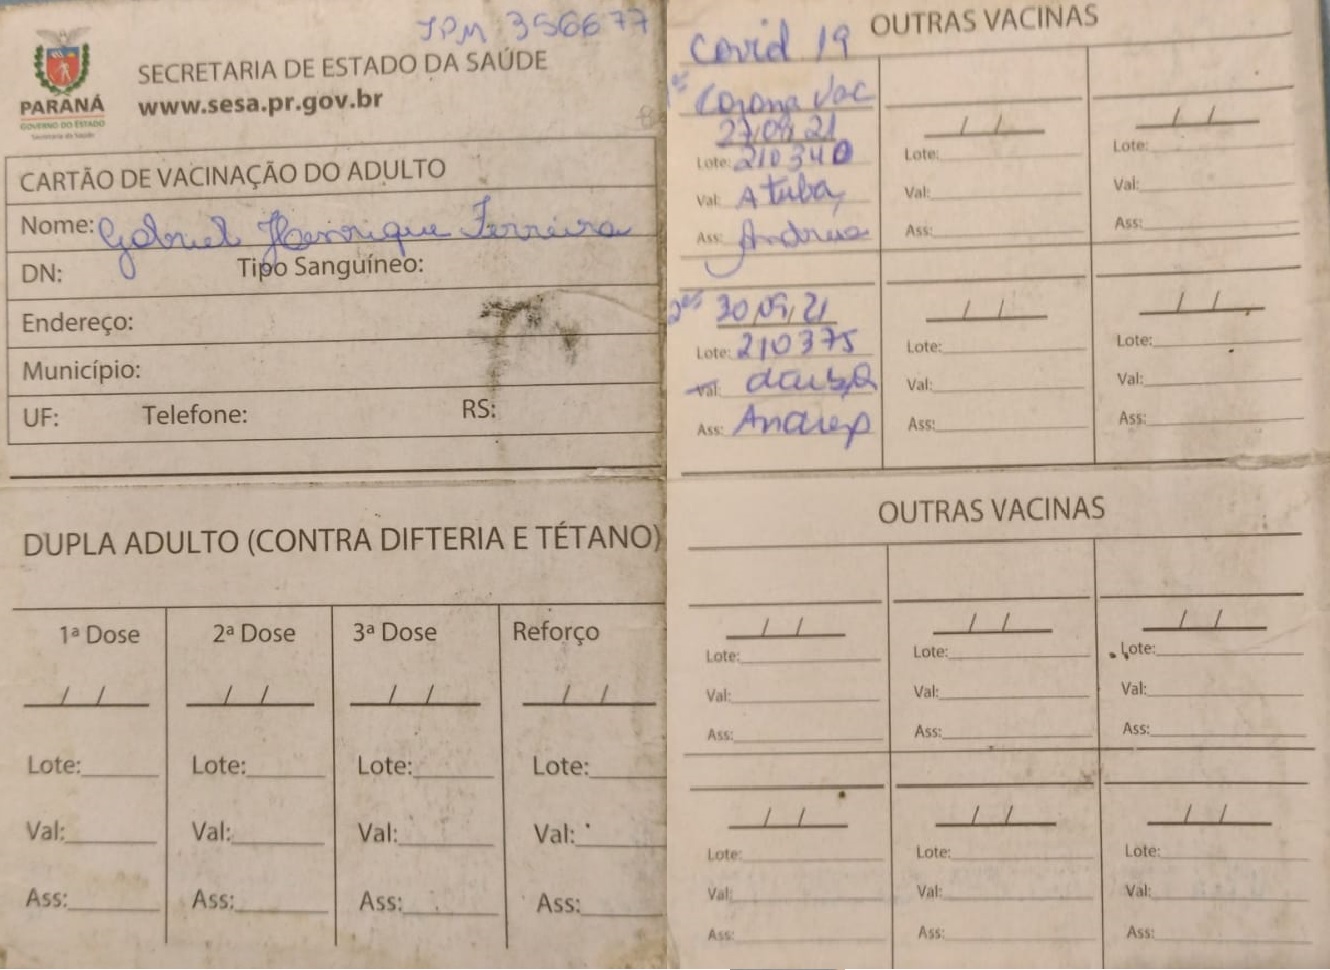 JPM 356677
PARANÁ
GOVERNO DO ESTADO
Secretaria da Saúde
SECRETARIA DE ESTADO DA SAÚDE
www.sesa.pr.gov.br
CARTÃO DE VACINAÇÃO DO ADULTO
Nome: Gabriel Henrique Ferreira
DN: Tipo Sanguíneo:
Endereço:
Município:
UF: Telefone: RS:
DUPLA ADULTO (CONTRA DIFTERIA E TÉTANO)
1ª Dose 2ª Dose 3ª Dose Reforço
/ / / / / / / /
Lote: Lote: Lote: Lote:
Val: Val: Val: Val:
Ass: Ass: Ass: Ass:
OUTRAS VACINAS
Covid 19
Corona Vac
/ / / /
Lote: 210340 Lote: Lote:
Val: Atuba Val: Val:
Ass: Andrea Ass: Ass:
30/09/21 / / / /
Lote: 210375 Lote: Lote:
Val: Val: Val:
Ass: Ass: Ass:
OUTRAS VACINAS
/ / / / / /
Lote: Lote: Lote:
Val: Val: Val:
Ass: Ass: Ass:
/ / / / / /
Lote: Lote: Lote:
Val: Val: Val:
Ass: Ass: Ass: